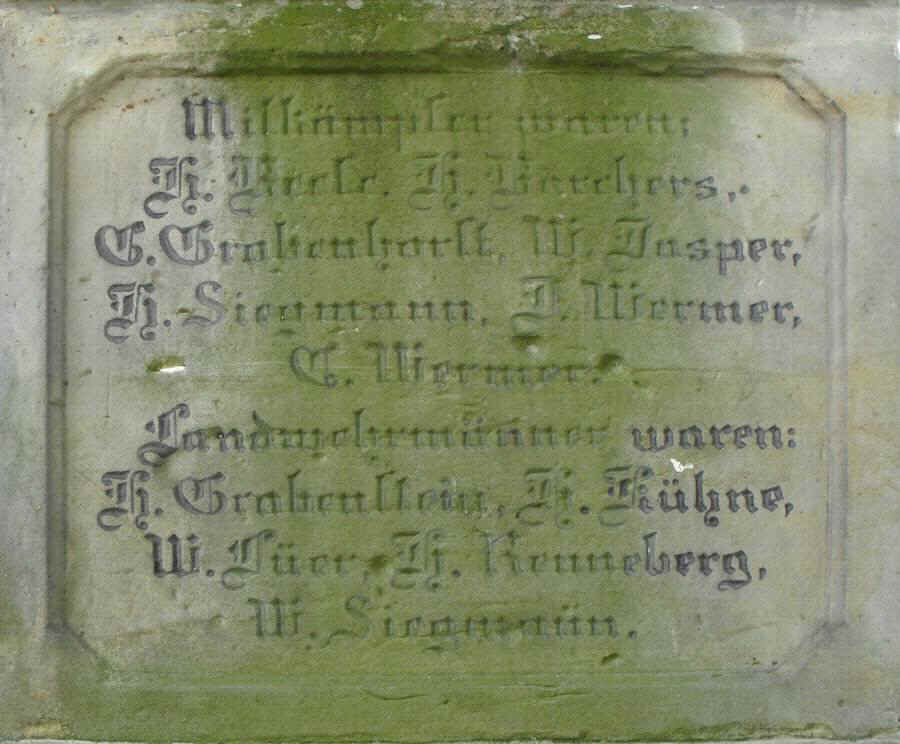 Mitkämpfer waren:
H. Behse. H. Borchers,
C. Grobenhorst, W. Jasper,
H. Siegmann, J. Wermer,
C. Wermer.
Landwehrmänner waren:
H. Grobenstein, H. Kühne,
W. Lüer, H. Renneberg,
W. Siegmann.